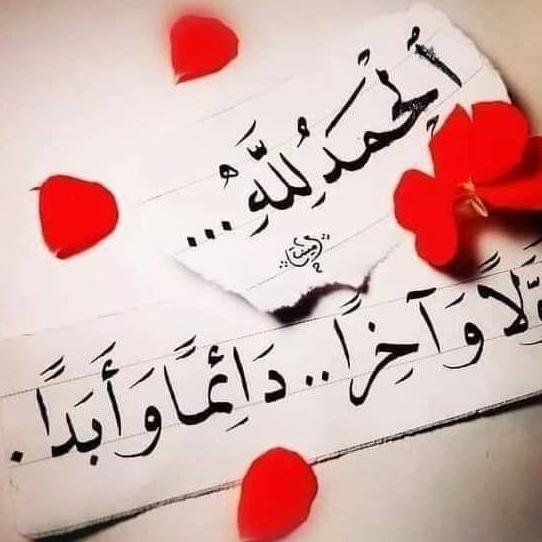 اُلْحَمْدُ لِلَّهِ...
وَّلاً وَآخِراً.. دَائِمًا وَأَبَدًا.